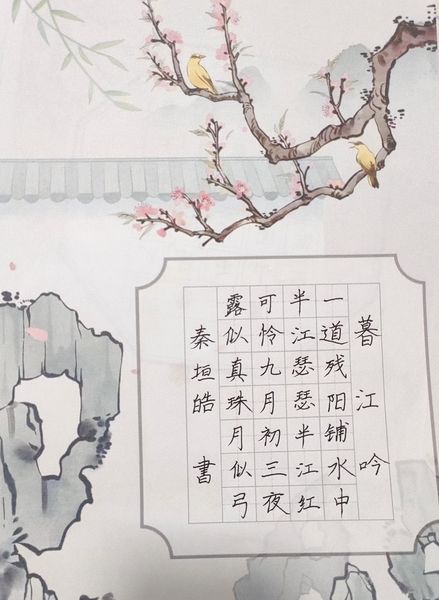 暮江吟
一道残阳铺水中
半江瑟瑟半江红
可怜九月初三夜
露似真珠月似弓
秦垣皓書